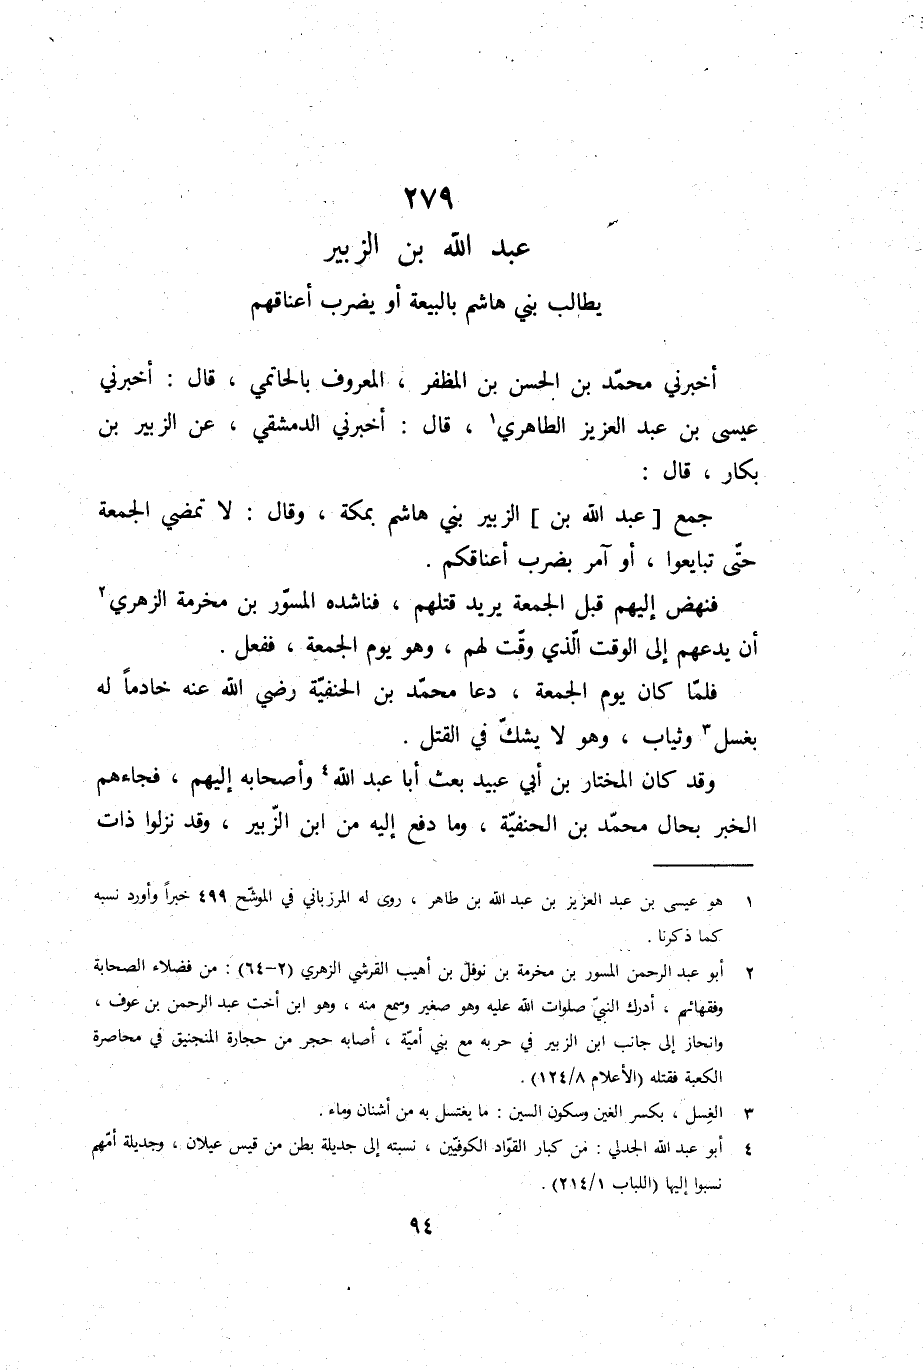 ٢٧٩
عبد الله بن الزبير
يطالب بني هاشم بالبيعة أو يضرب أعناقهم
أخبرني محمّد بن الحسن بن المظفر ، المعروف بالحاتمي ، قال : أخبرني
عيسى بن عبد العزيز الطاهري١ ، قال : أخبرني الدمشقي ، عن الزبير بن
بكار ، قال :
جمع [ عبد الله بن ] الزبير بني هاشم بمكة ، وقال : لا تمضي الجمعة
حتّى تبايعوا ، أو آمر بضرب أعناقكم .
فنهض إليهم قبل الجمعة يريد قتلهم ، فناشده المسوّر بن مخرمة الزهري٢
أن يدعهم إلى الوقت الّذي وقّت لهم ، وهو يوم الجمعة ، ففعل .
فلمّا كان يوم الجمعة ، دعا محمّد بن الحنفيّة رضي الله عنه خادماً له
بغسل٣ وثياب ، وهو لا يشكّ في القتل .
وقد كان المختار بن أبي عبيد بعث أبا عبد الله٤ وأصحابه إليهم ، فجاءهم
الخبر بحال محمّد بن الحنفيّة ، وما دفع إليه من ابن الزّبير ، وقد نزلوا ذات
١ هو عيسى بن عبد العزيز بن عبد الله بن طاهر ، روى له المرزباني في الموشّح ٤٩٩ خبراً وأورد نسبه
كما ذكرنا .
٢ أبو عبد الرحمن المسور بن مخرمة بن نوفل بن أهيب القرشي الزهري (٢-٦٤) : من فضلاء الصحابة
وفقهائهم ، أدرك النبيّ صلوات الله عليه وهو صغير وسمع منه ، وهو ابن أخت عبد الرحمن بن عوف ،
وانحاز إلى جانب ابن الزبير في حربه مع بني أميّة ، أصابه حجر من حجارة المنجنيق في محاصرة
الكعبة فقتله (الأعلام ١٢٤/٨) .
٣ الغِسل ، بكسر الغين وسكون السين : ما يغتسل به من أشنان وماء .
٤ أبو عبد الله الجدلي : من كبار القوّاد الكوفيّين ، نسبته إلى جديلة بطن من قيس عيلان ، وجديلة أمّهم
نسبوا إليها (اللباب ٢١٤/١) .
٩٤